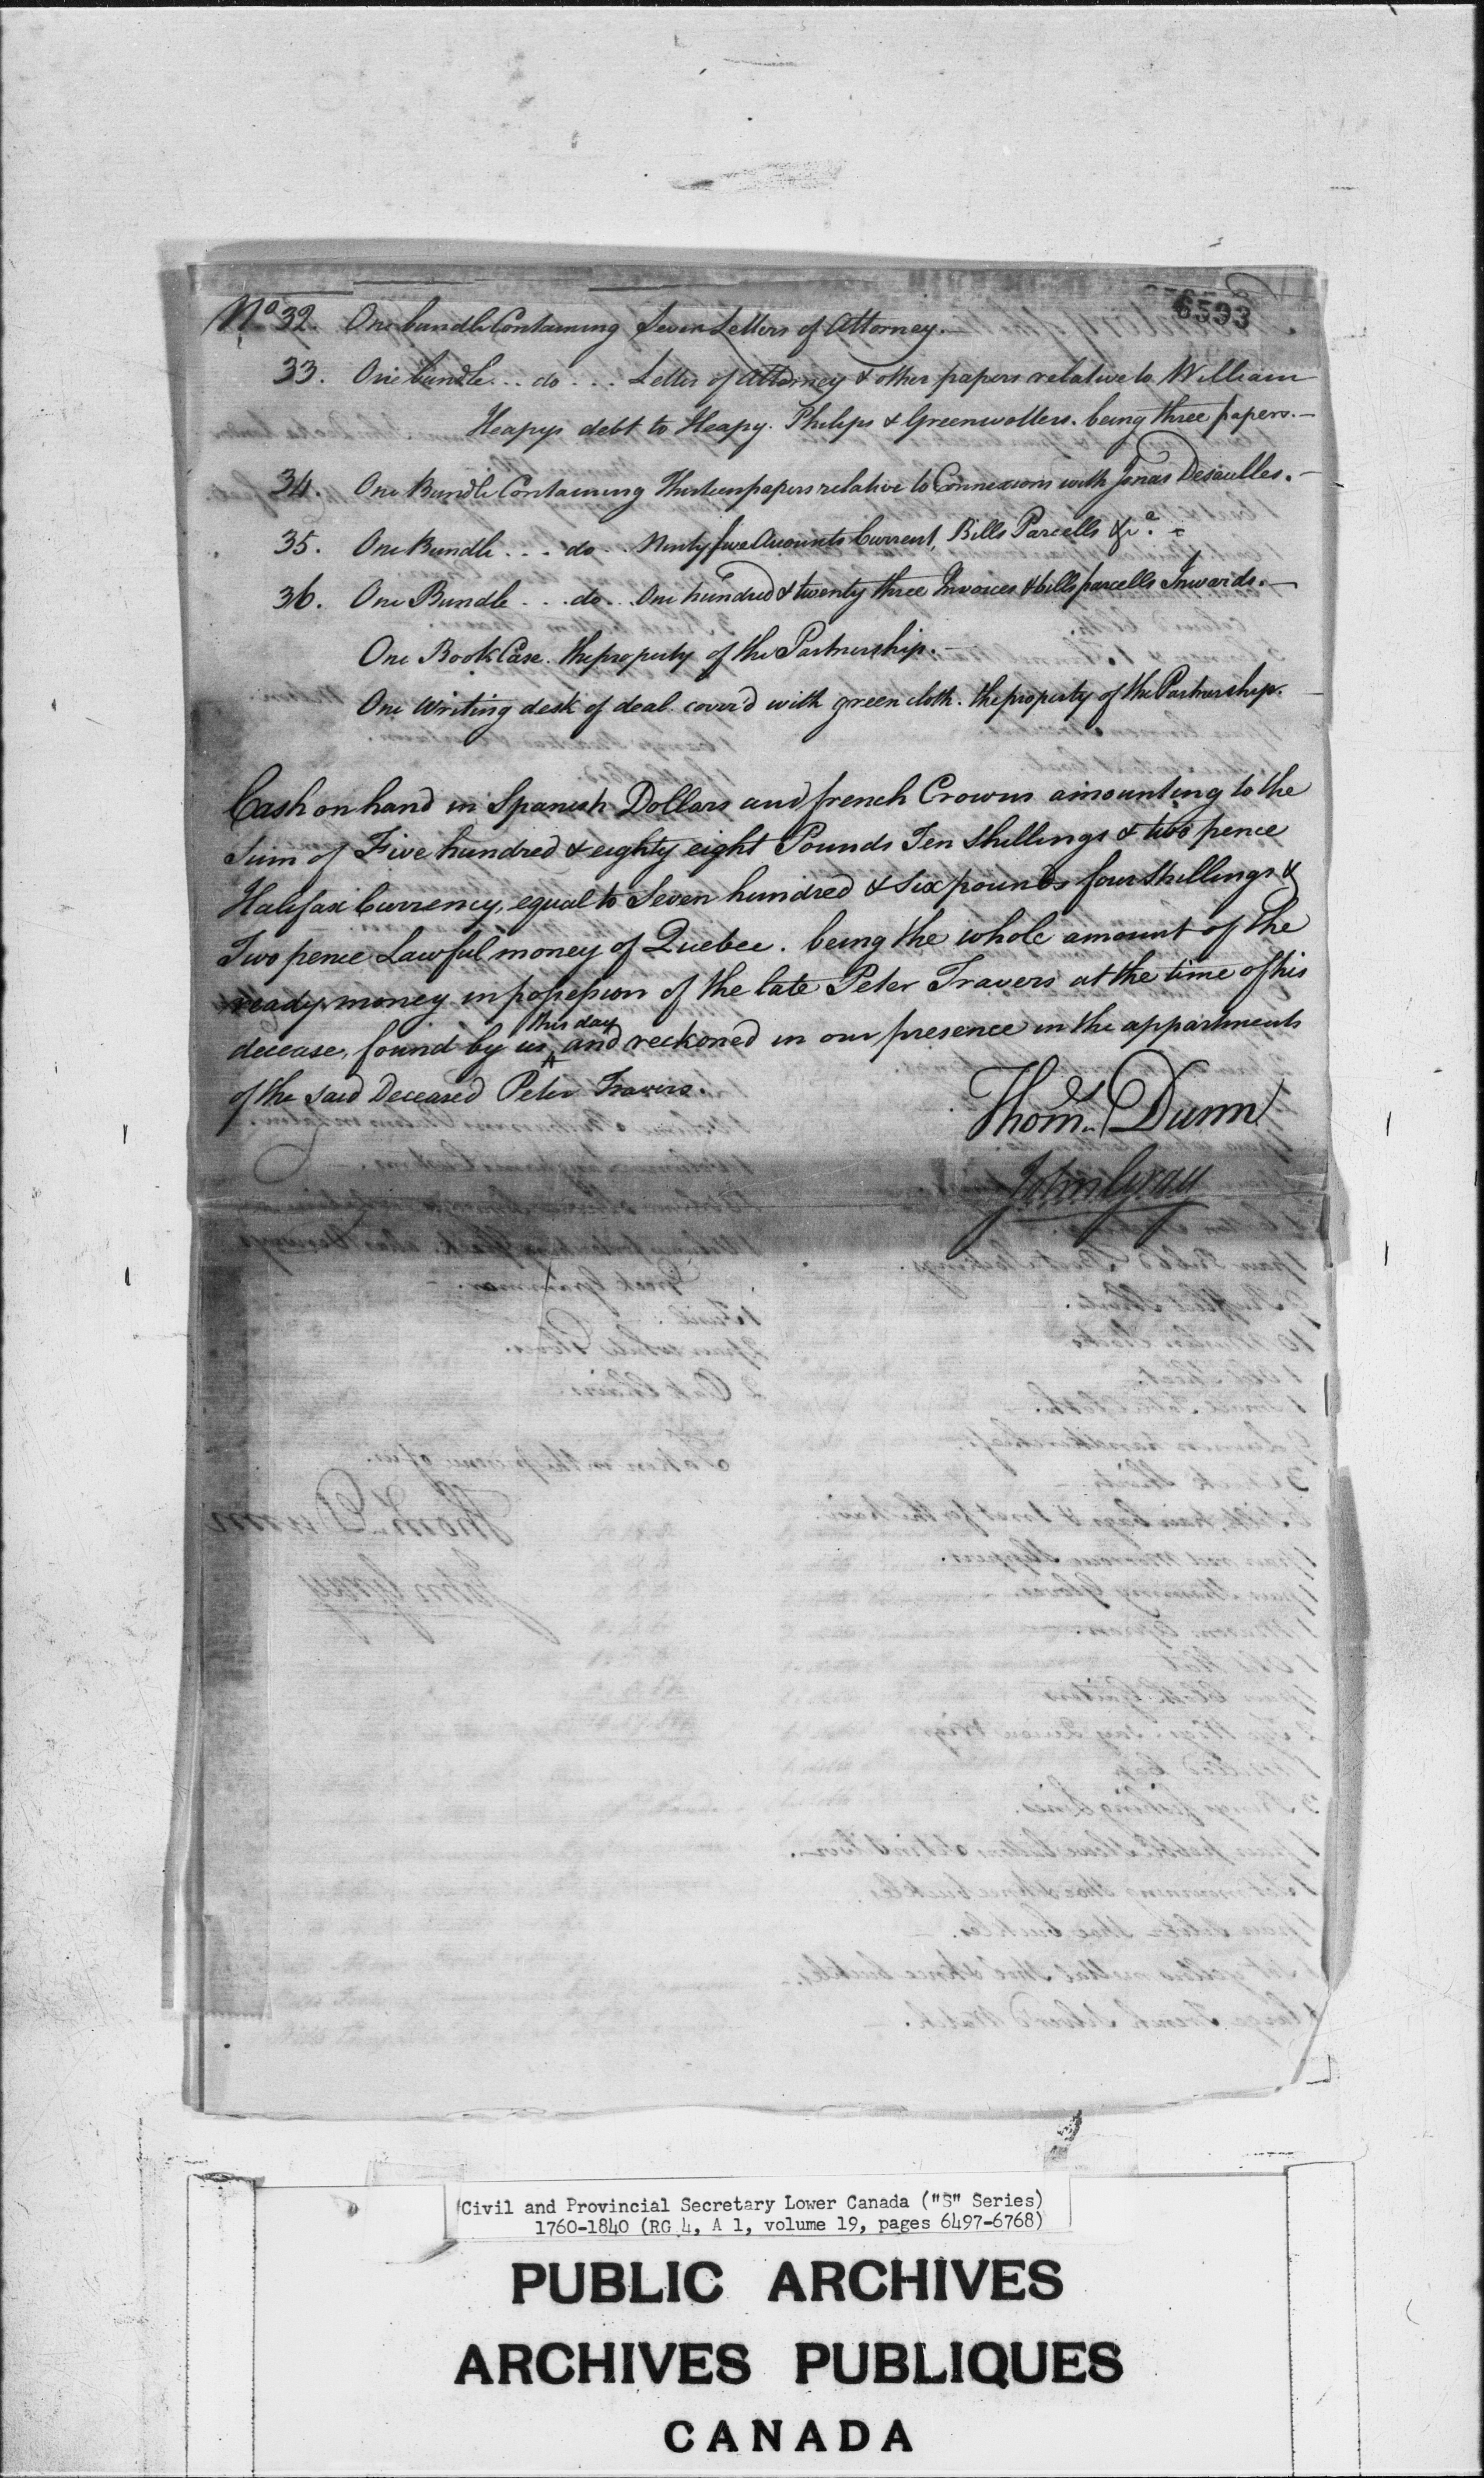 6593
No 32. One bundle Containing Seven Letters of Attorney.—
33. One bundle... do... Letter of Attorney & other papers relative to William
Heapys debt to Heapy. Philips & Greenwollers. being three papers.—
34. One Bundle Containing Thirteen papers relative to Connexions with Jonas Desaulles.—
35. One Bundle... do... Ninty five Accounts Current, Bills Parcells &ca.
36. One Bundle... do... One hundred & twenty three Invoices & bills parcells Inwards.—
One Book Case. the property of the Partnership.—
One Writing desk of deal. cover'd with green cloth. the property of the Partnership.
Cash on hand in Spanish Dollars and french Crowns amounting to the
Sum of Five hundred & eighty eight Pounds Ten Shillings & two pence
Halifax Currency, equal to Seven hundred & six pounds four Shillings &
Two pence Lawful money of Quebec. being the whole amount of the
ready money in possession of the late Peter Travers at the time of his
this day
decease, found by us ^ and reckoned in our presence in the appartments
of the said Deceased Peter Travers.
Thoms. Dunn
John Gray
Civil and Provincial Secretary Lower Canada ("S" Series)
1760-1840 (RG 4, A 1, volume 19, pages 6497-6768)
PUBLIC ARCHIVES
ARCHIVES PUBLIQUES
CANADA